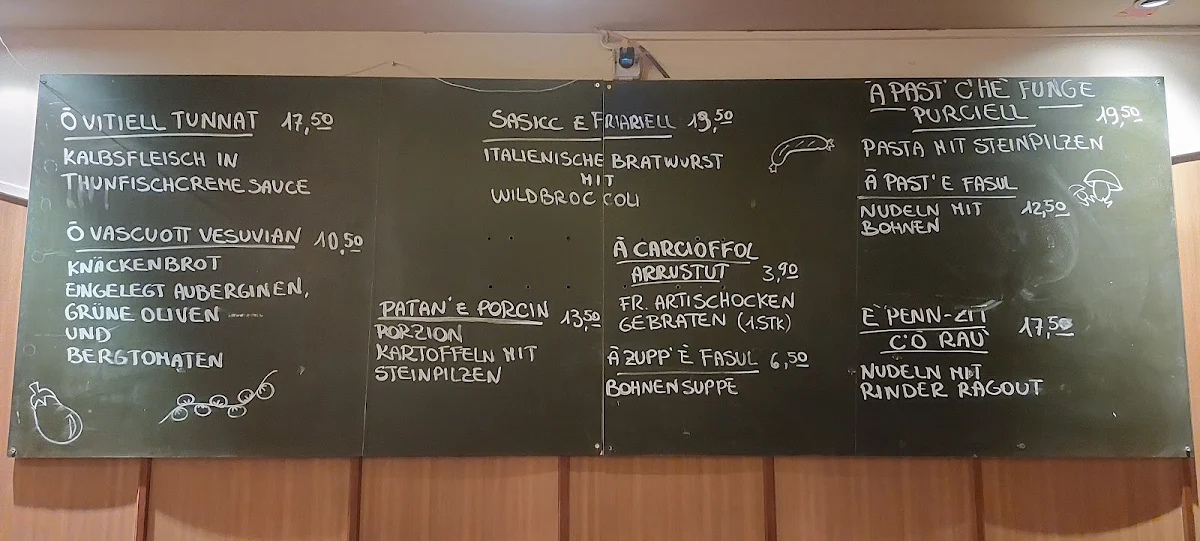 Ō VITIELL TUNNAT 17,50
KALBSFLEISCH IN
THUNFISCHCREME SAUCE
Ō VASCUOTT VESUVIAN 10,50
KNÄCKENBROT
EINGELEGT AUBERGINEN,
GRÜNE OLIVEN
UND
BERGTOMATEN
PATAN' E PORCIN 13,50
PORZION
KARTOFFELN MIT
STEINPILZEN
SASICC E FRIARIELL 19,50
ITALIENISCHE BRATWURST
MIT
WILDBROCCOLI
Ā CARCIOFFOL
ARRUSTUT 3,90
FR. ARTISCHOCKEN
GEBRATEN (1.STK)
Ā ZUPP' È FASUL 6,50
BOHNENSUPPE
Ā PAST' C'HÈ FUNGE
PURCIELL 19,50
PASTA MIT STEINPILZEN
Ā PAST' E FASUL
NUDELN MIT 12,50
BOHNEN
È PENN-ZIT 17,50
C'Ō RAÙ
NUDELN MIT
RINDER RAGOUT